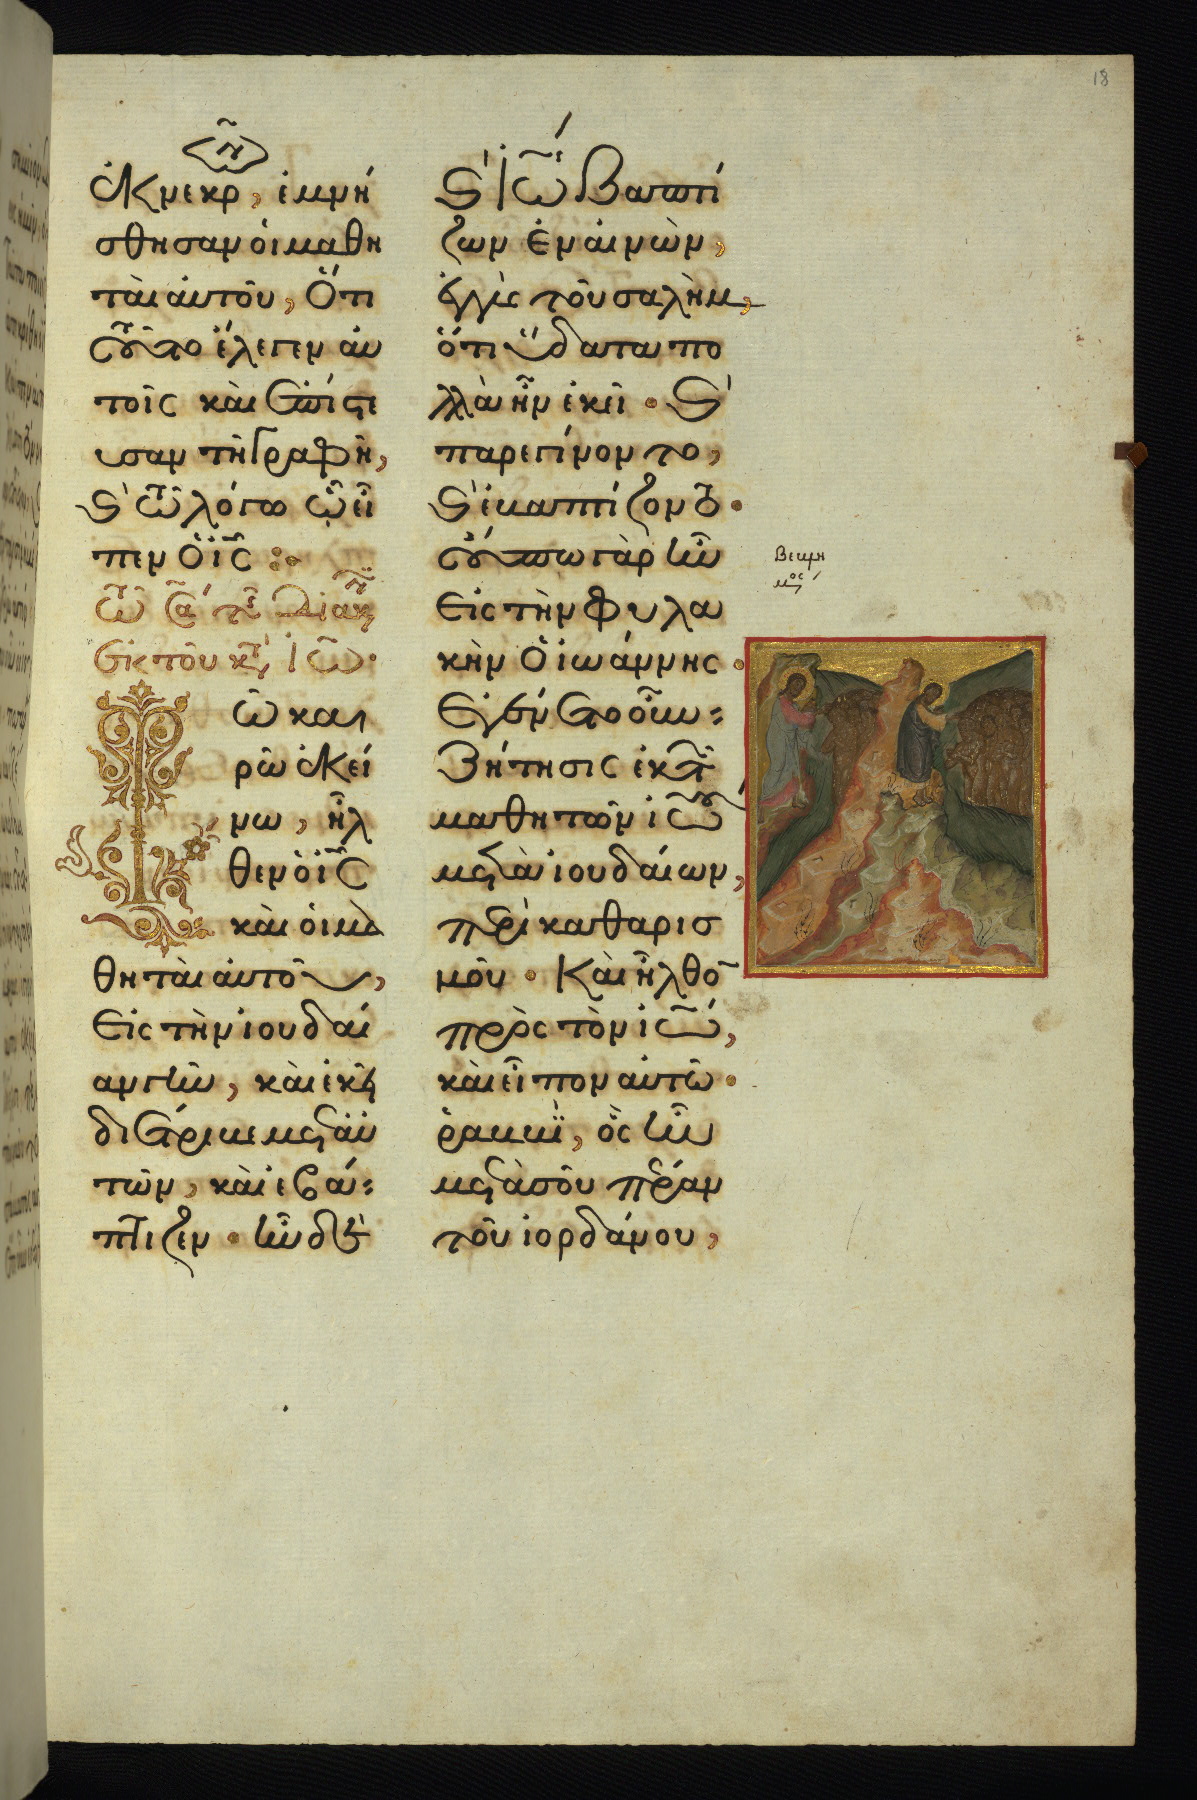 18
ἐκ νεκρ, ἐμνή
σθησαν οἱ μαθη
ταὶ αὐτοῦ, Ὅτι
τοῦτο ἔλεγεν αὐ
τοῖς καὶ ἐπίστε
υσαν τῇ Γραφῇ,
καὶ τῷ λόγω ᾧ εἶ
πεν ὁ ἰς
Ἐκ τοῦ κτ Ἰω
ῶ και
ρῶ ἐκεί
νω, ἦλ
θεν ὁ ἰς
καὶ οἱ μα
θηταὶ αὐτοῦ,
Εἰς τὴν ἰουδαί
αν γῆν, καὶ ἐκεῖ
διέτριβε μετ αὐ
τῶν, καὶ ἐβά
πτιζεν. ἦν δὲ
καὶ Ἰω Βαπτί
ζων ἐν αἰνὼν,
ἐγγὺς τοῦ σαλὴμ,
ὅτι ὕδατα πο
λλὰ ἦν ἐκεῖ. καὶ
παρεγίνοντο,
καὶ ἐβαπτίζοντο.
οὔπω γὰρ ἦν
Εἰς τὴν φυλα
κὴν ὁ ἰωάννης.
Ἐγένετο οὖν
ζήτησις ἐκ τῶν
μαθητῶν ἰω
μετὰ ἰουδαίων,
περὶ καθαρισ
μοῦ. Καὶ ἦλθο
πρὸς τὸν ἰω,
καὶ εἶπον αὐτῶ.
ῥαββὶ, ὃς ἦν
μετὰ σοῦ πέραν
τοῦ ἰορδάνου,